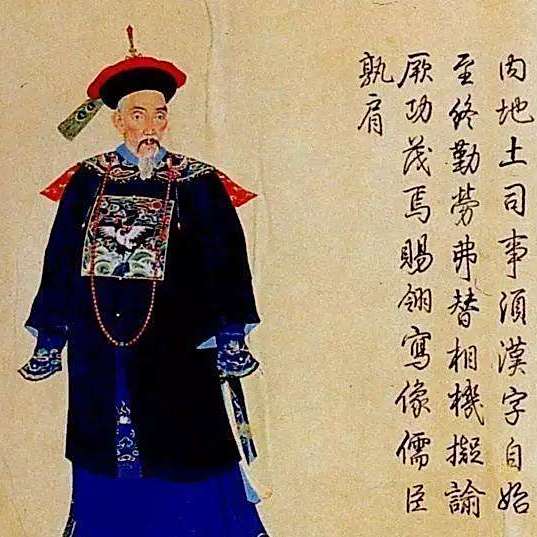 內地土司事須漢字自始
至終勤勞弗替相機擬諭
厥功茂焉賜翎寫像儒臣
孰肩